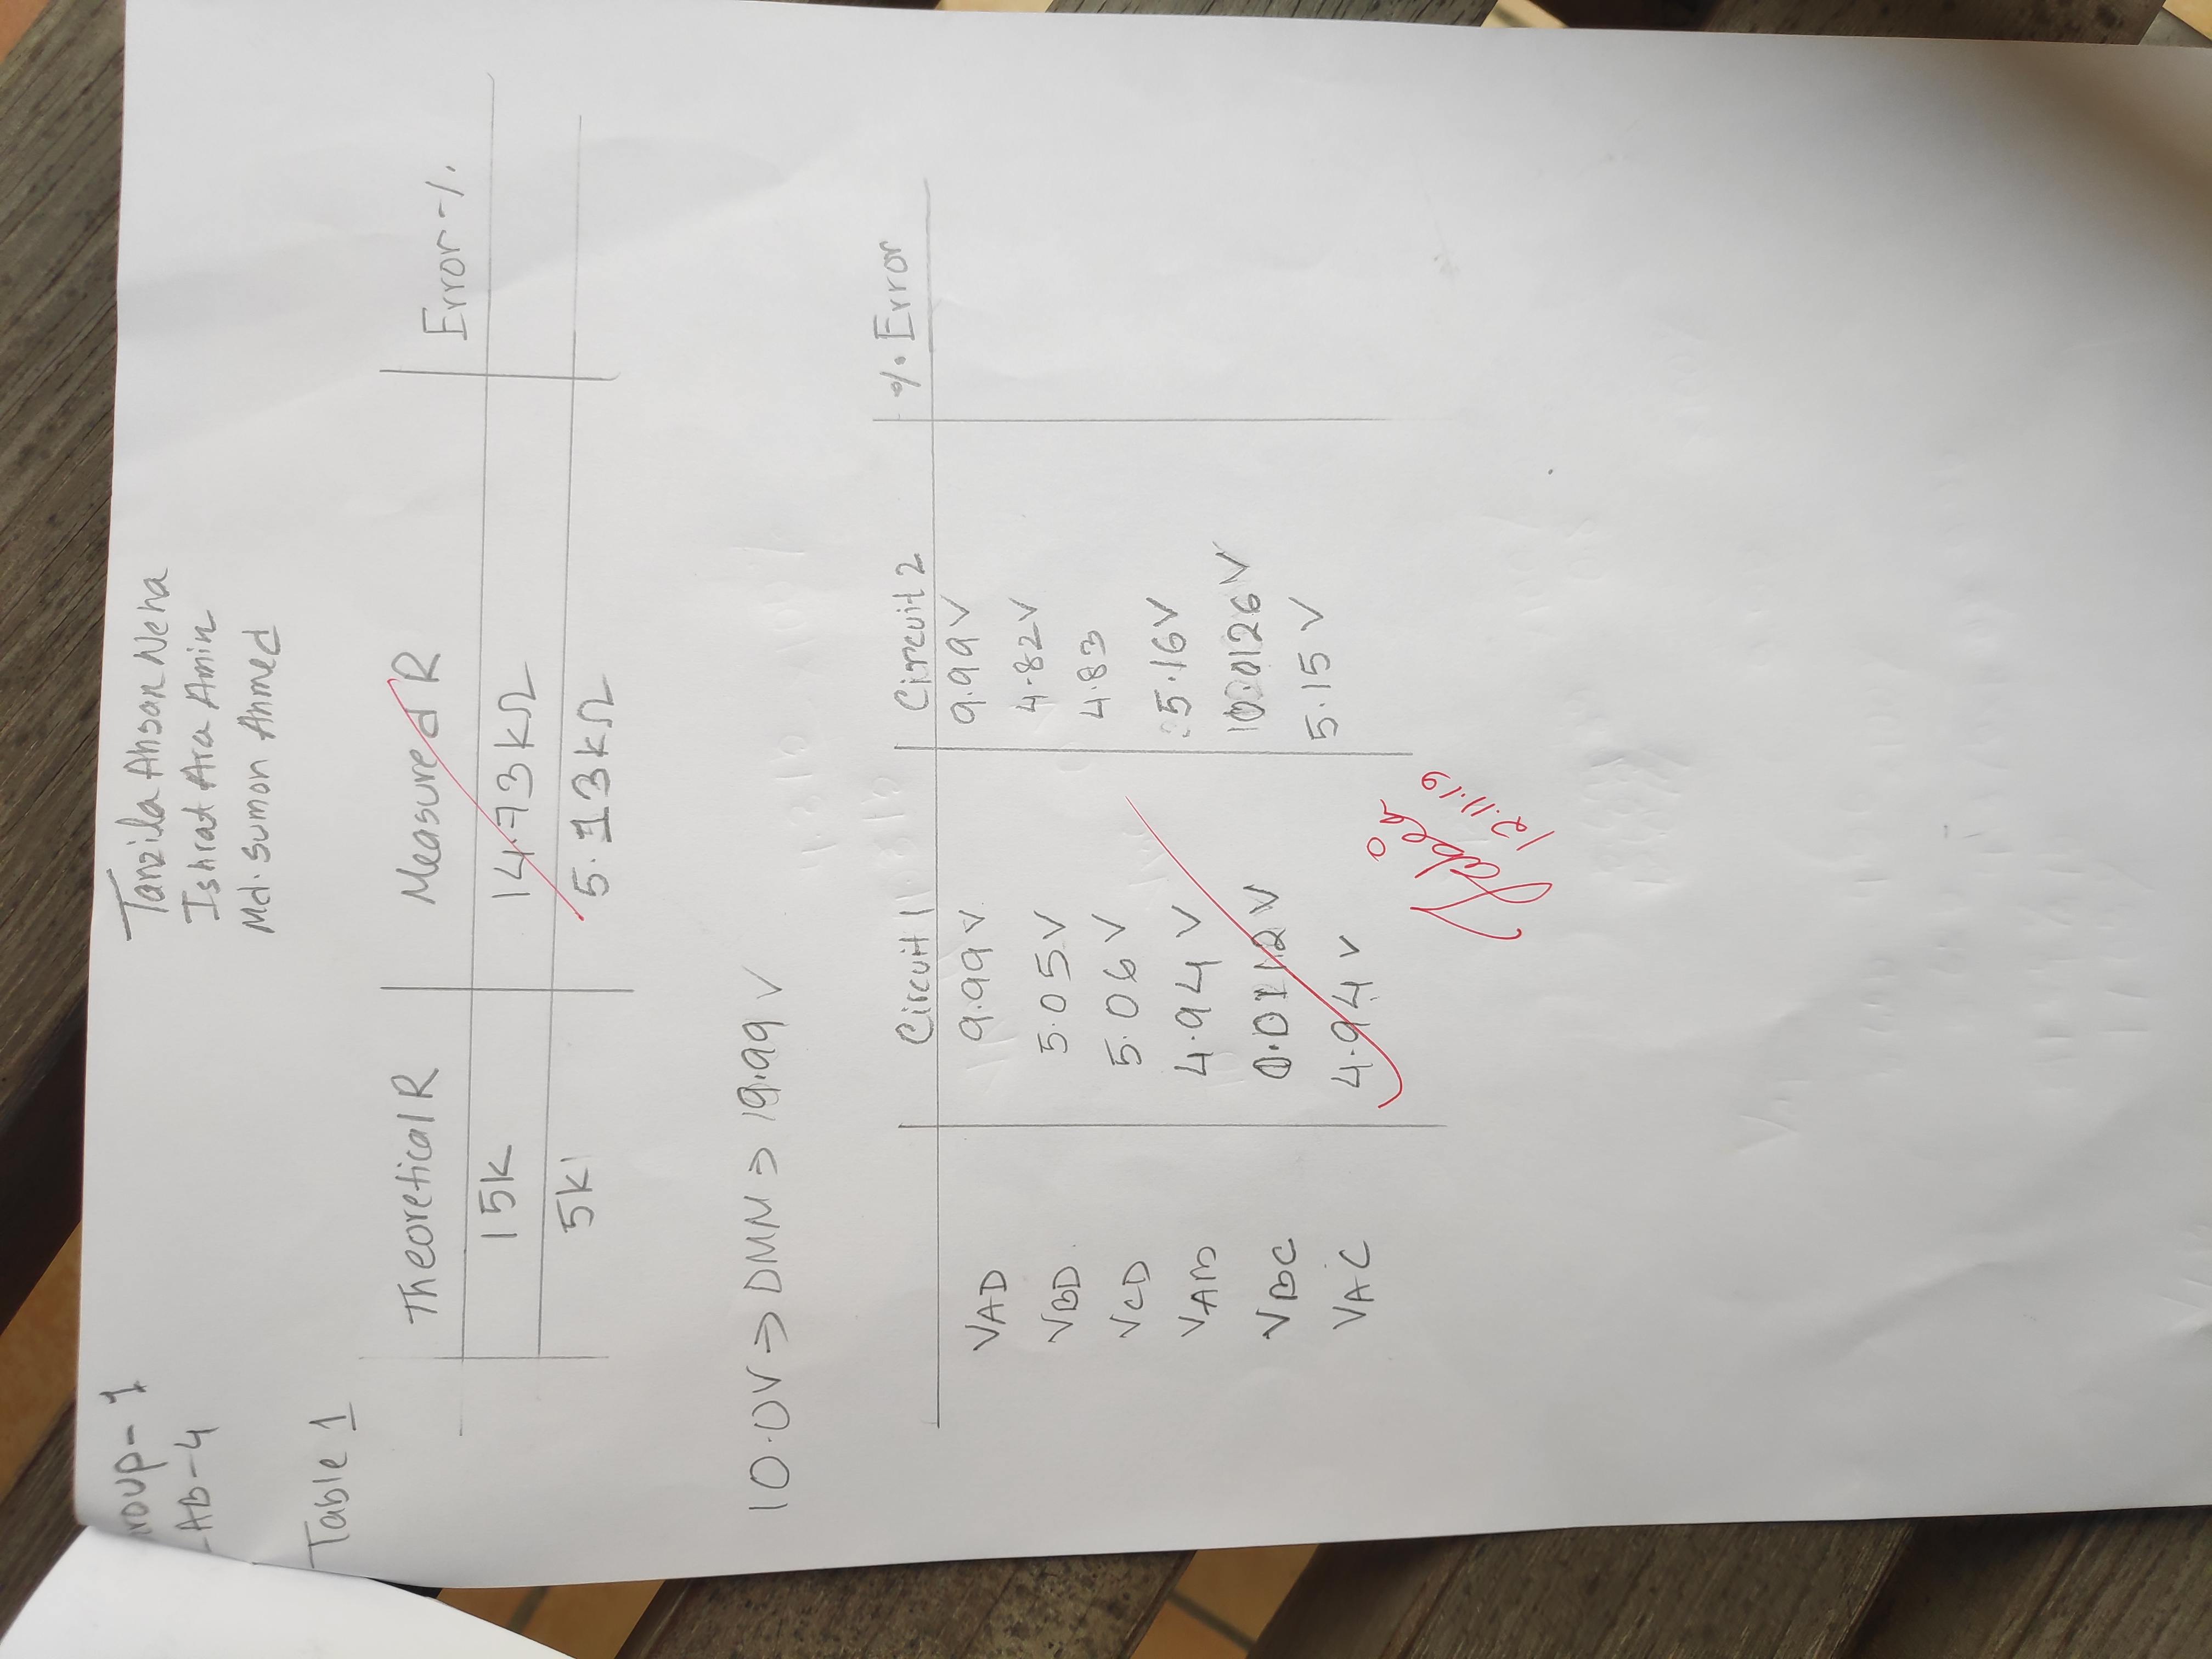 Group-1
LAB-4
Tanzila Ahsan Neha
Ishrat Ara Amin
Md. Sumon Ahmed
Table 1
Theoretical R Measured R Error %
15k 14.73kΩ
5k 5.13kΩ
10.0V ⇒ DMM ⇒ 19.99 V
Circuit 1 Circuit 2 % Error
VAD 9.99 V 9.99 V
VBD 5.05 V 4.82V
VCD 5.06 V 4.83
VAB 4.94 V 5.16V
VBC 0.0112 V 0.0126 V
VAC 4.94 V 5.15 V
12.11.19